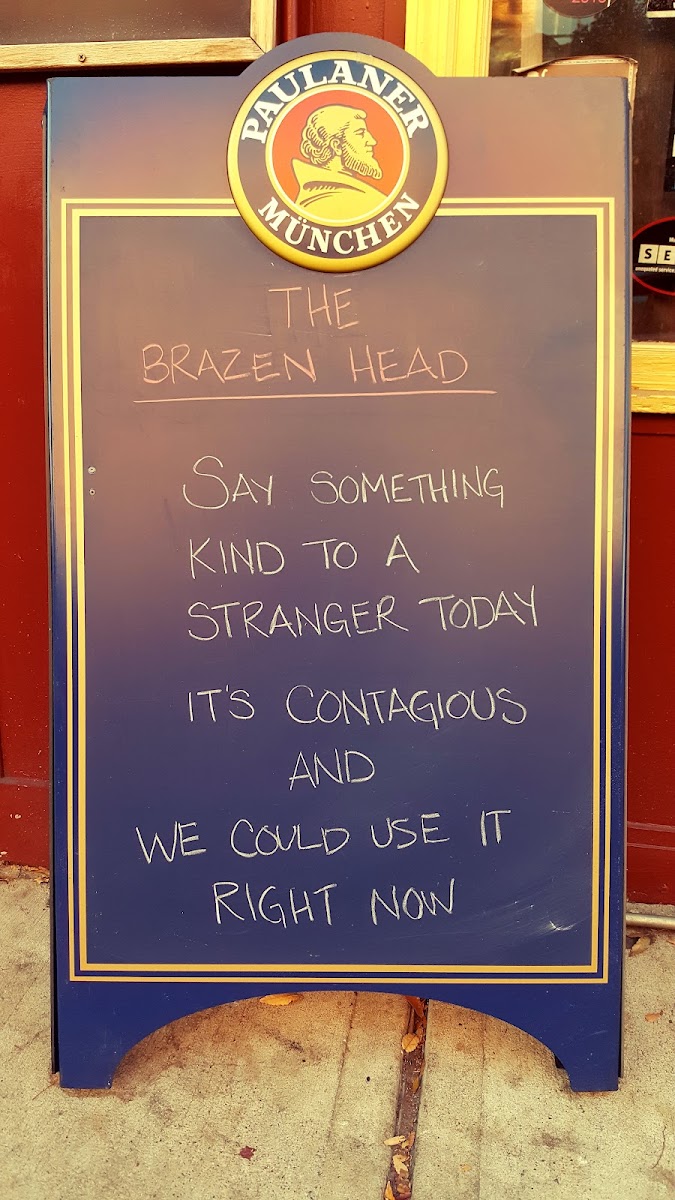 PAULANER
MÜNCHEN
THE
BRAZEN HEAD
SAY SOMETHING
KIND TO A
STRANGER TODAY
IT'S CONTAGIOUS
AND
WE COULD USE IT
RIGHT NOW